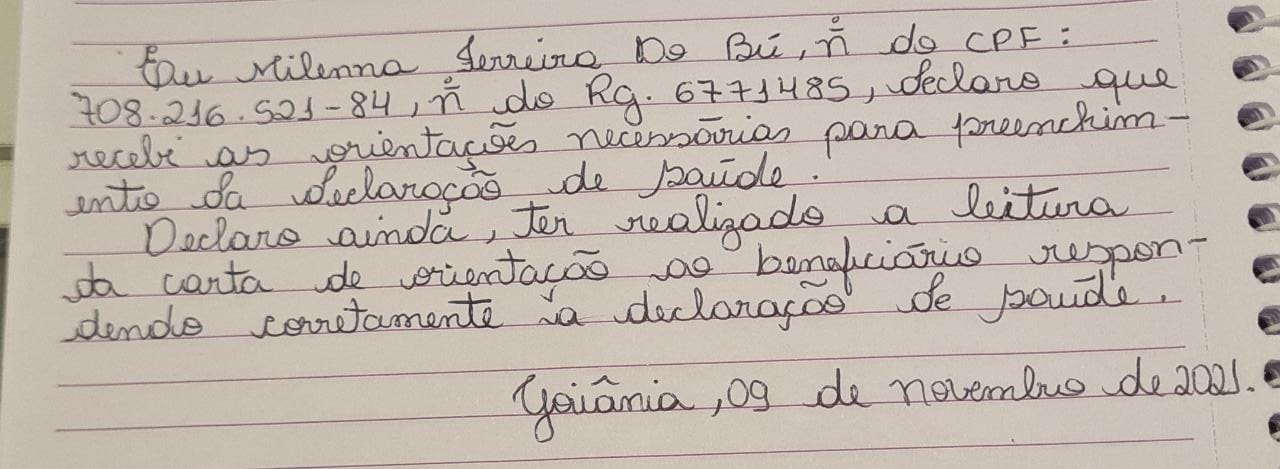 Eu Milenna Ferreira Do Bú, n° do CPF:
708.216.521-84, n° do Rg. 6771485, declaro que
recebi as orientações necessárias para preenchim-
ento da declaração de saúde.
Declaro ainda, ter realizado a leitura
da carta de orientação ao beneficiário respon-
dendo corretamente à declaração de saúde.
Goiânia, 09 de novembro de 2021.